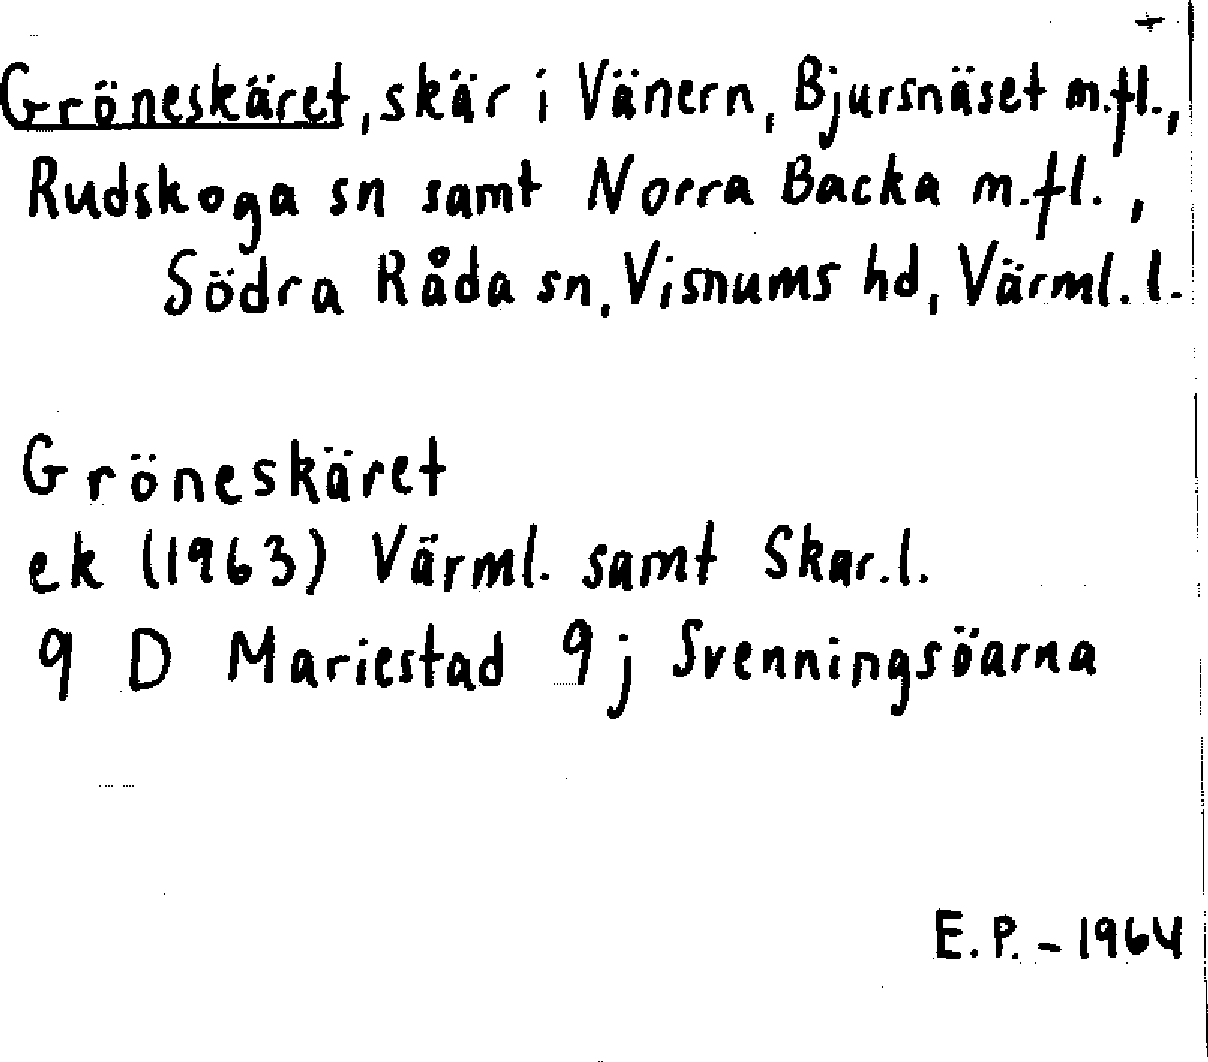 +
Gröneskäret, skär i Vänern, Bjursnäset m.fl.,
Rudskoga sn samt Norra Backa m.fl.,
Södra Råda sn, Visnums hd, Värml. l.
Gröneskäret
ek (1963) Värml. samt Skar.l.
9 D Mariestad 9 j Svenningsöarna
E.P. - 1964